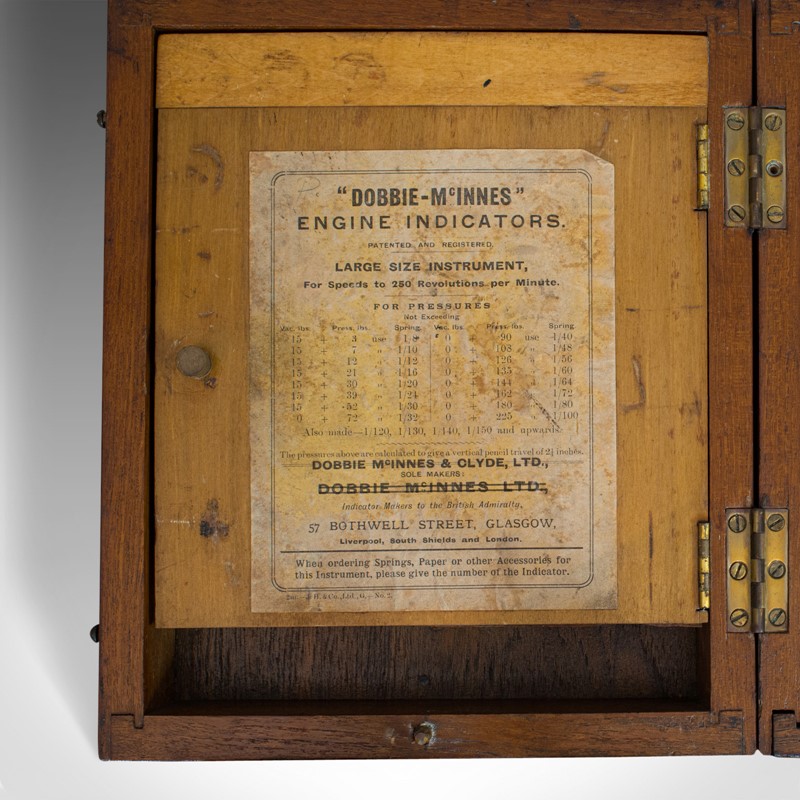 "DOBBIE-McINNES"
ENGINE INDICATORS.
PATENTED AND REGISTERED.
LARGE SIZE INSTRUMENT,
For Speeds to 250 Revolutions per Minute.
FOR PRESSURES
Not Exceeding
Vac. lbs. Press. lbs. Spring. Vac. lbs Press. lbs Spring
15 + 3 use 1/8 0 + 90 use 1/40
15 + 7 " 1/10 0 + 108 " 1/48
15 + 12 " 1/12 0 + 126 " 1/56
15 + 21 " 1/16 0 + 135 " 1/60
15 + 30 " 1/20 0 + 144 " 1/64
15 + 39 " 1/24 0 + 162 " 1/72
15 + 52 " 1/30 0 + 180 " 1/80
0 + 72 " 1/32 0 + 225 " 1/100
Also made—1/120, 1/130, 1/140, 1/150 and upwards.
The pressures above are calculated to give a vertical pencil travel of inches.
DOBBIE McINNES & CLYDE, LTD.,
SOLE MAKERS:
DOBBIE McINNES LTD.,
Indicator Makers to the British Admiralty,
57 BOTHWELL STREET, GLASGOW,
Liverpool, South Shields and London.
When ordering Springs, Paper or other Accessories for
this Instrument, please give the number of the Indicator.
& Co., Ltd., G.—No.